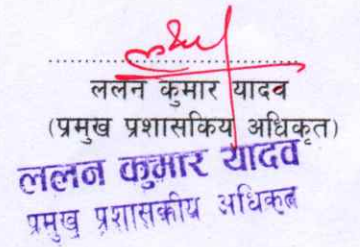 ....................................
ललन कुमार यादव
(प्रमुख प्रशासकिय अधिकृत)
ललन कुमार यादव
प्रमुख प्रशासकीय अधिकृत